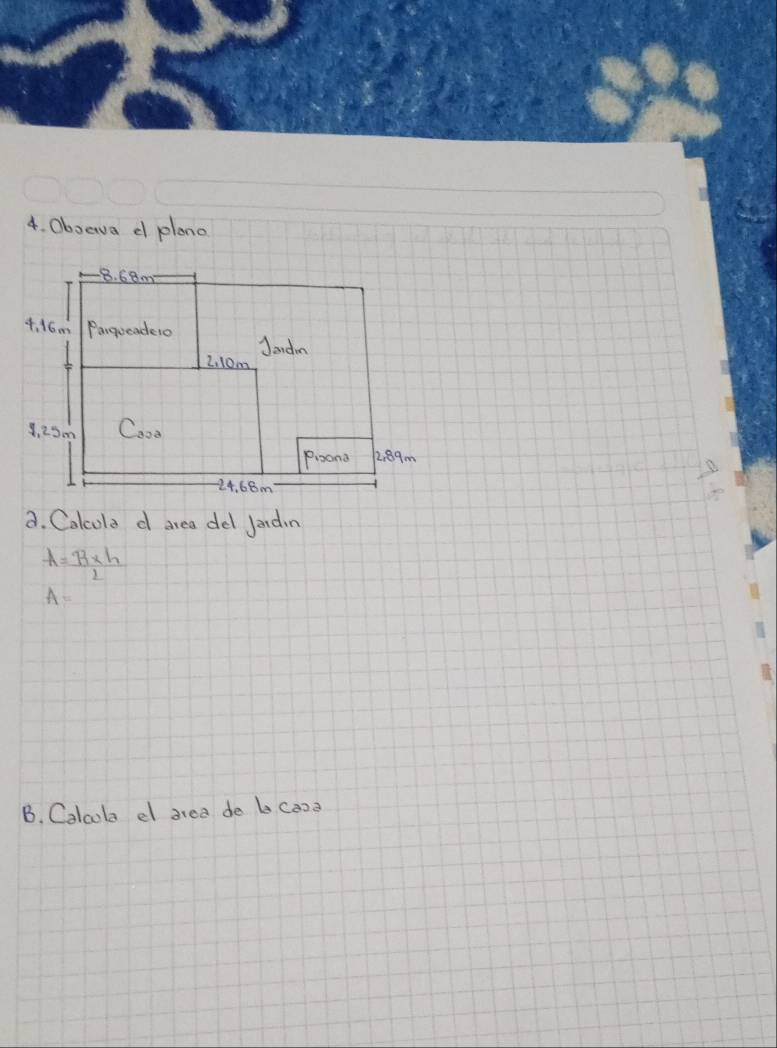 4. Observa el plano
8.68m
4,16m Parqueadero
Jardin
2.10m
Casa
Piscina 2,89m
24,68m
a. Calcula el area del jardin
A = B x h
2
A =
B. Calcula el area de la casa